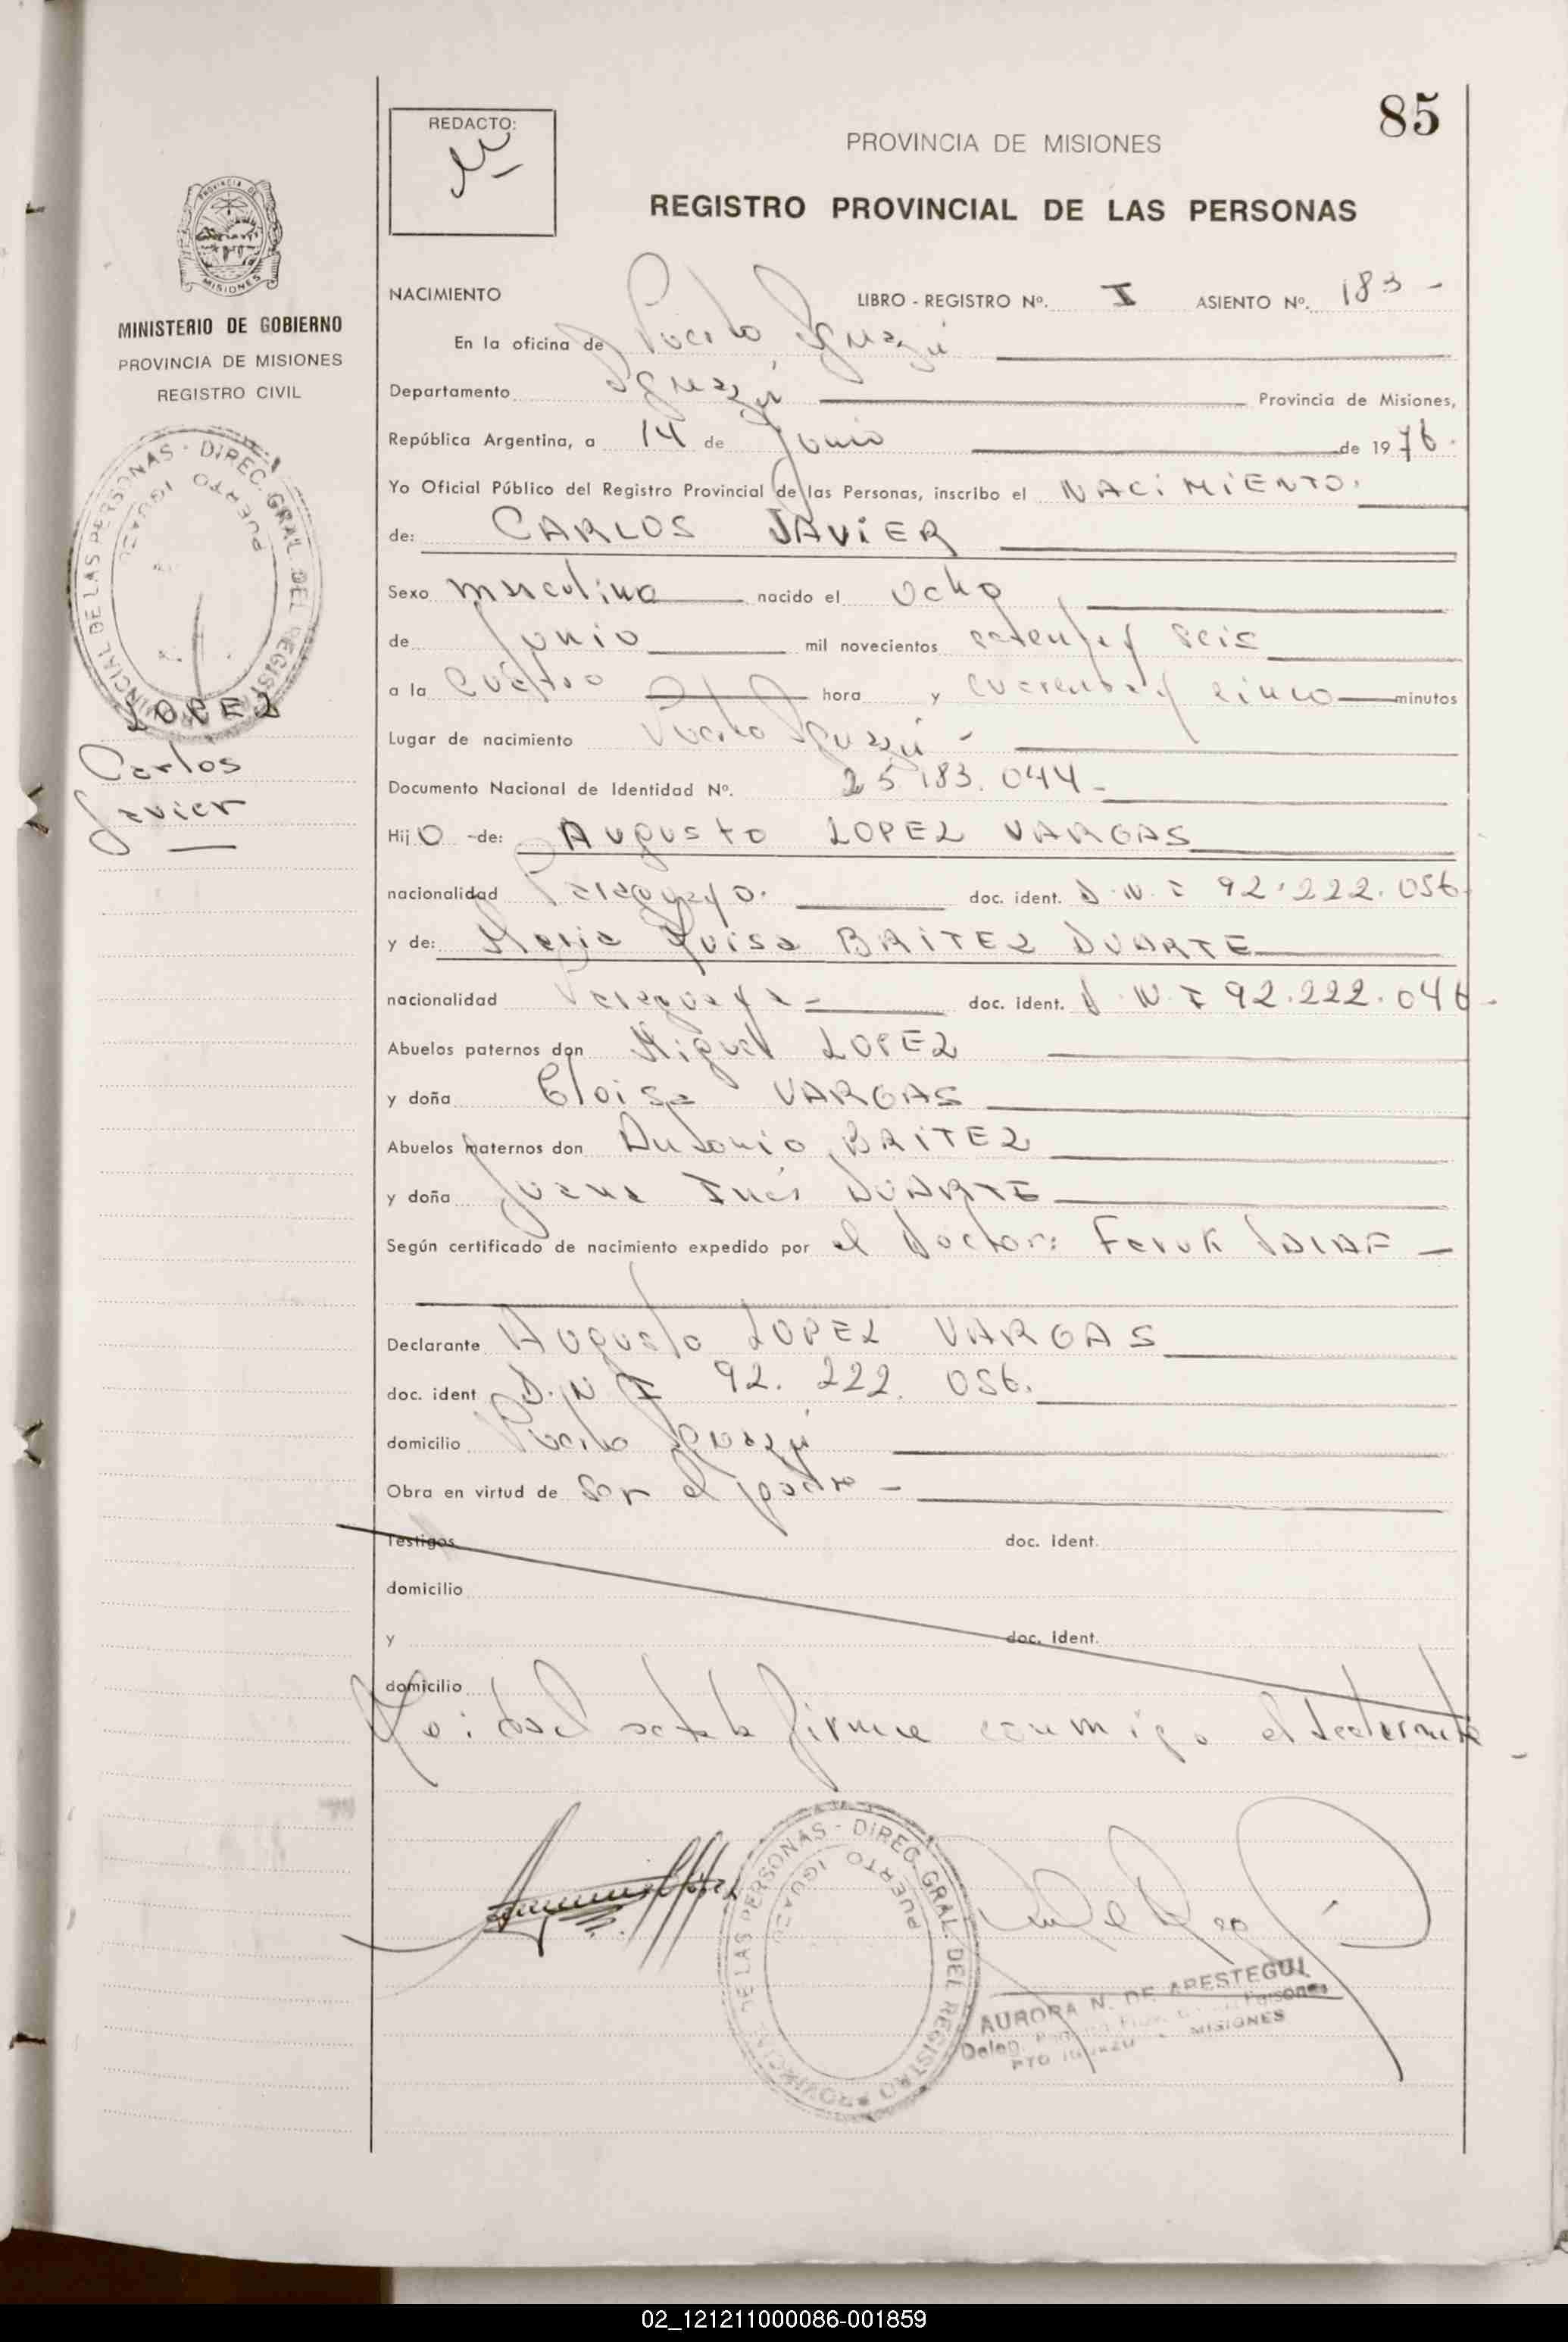 85
REDACTO:
PROVINCIA DE MISIONES
REGISTRO PROVINCIAL DE LAS PERSONAS
PROVINCIA DE
MISIONES
MINISTERIO DE GOBIERNO
PROVINCIA DE MISIONES
REGISTRO CIVIL
PROVINCIAL DE LAS PERSONAS - DIREC. GRAL. DEL REGISTRO
PUERTO IGUAZU
LOPEZ
Carlos
Javier
NACIMIENTO LIBRO - REGISTRO Nº. I ASIENTO Nº. 183 -
En la oficina de Puerto Iguazú
Departamento Iguazú Provincia de Misiones,
República Argentina, a 14 de Junio de 1976.
Yo Oficial Público del Registro Provincial de las Personas, inscribo el NACIMIENTO.
de: CARLOS JAVIER
Sexo masculino nacido el ocho
de Junio mil novecientos setenta y seis
a la cuatro hora y cuarenta y cinco minutos
Lugar de nacimiento Puerto Iguazú -
Documento Nacional de Identidad Nº. 25.183.044-
Hijo -de: Augusto LOPEZ VARGAS
nacionalidad Paraguayo. doc. ident. D.N.I 92.222.056.
y de: Maria Luisa BRITEZ DUARTE
nacionalidad Paraguaya - doc. ident. D.N.I 92.222.046-
Abuelos paternos don Miguel LOPEZ
y doña Eloisa VARGAS
Abuelos maternos don Antonio BRITEZ
y doña Juana Inés DUARTE
Según certificado de nacimiento expedido por el Doctor: Faruk -
Declarante Augusto LOPEZ VARGAS
doc. ident D.N.I 92.222.056.
domicilio Puerto Iguazú
Obra en virtud de ser el padre -
Testigos doc. ident.
domicilio
y doc. ident.
domicilio
Leida el acta la firma conmigo el declarante -
PROVINCIAL DE LAS PERSONAS - DIREC. GRAL. DEL REGISTRO
PUERTO IGUAZU
AURORA N. DE ARESTEGUI
Deleg. Personas
PTO IGUAZU - MISIONES
02_121211000086-001859